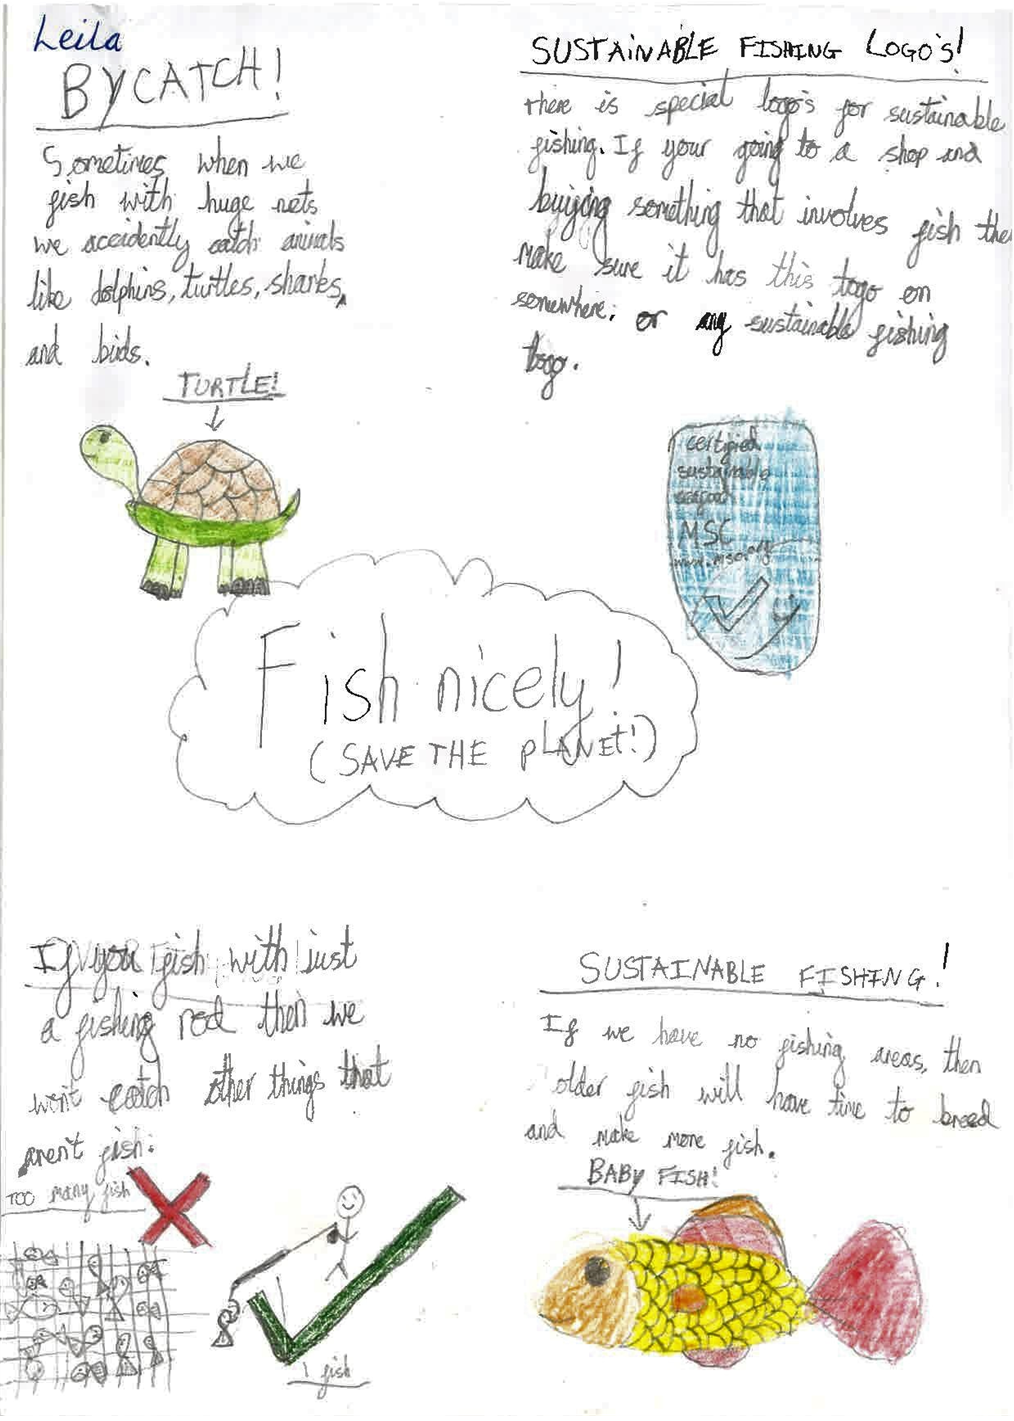 Leila
BYCATCH!
Sometimes when we
fish with huge nets
we accidently catch animals
like dolphins, turtles, sharks,
and birds.
TURTLE!
SUSTAiNABLE FISHING LOGO'S!
there is special logo's for sustainable
fishing. If your going to a shop and
buijing something that involves fish the
make sure it has this logo on
somewhere, or any sustainable fishing
logo.
certified
sustainable
seafood
MSC
www.msc.org
Fish nicely!
(SAVE THE PLANEt!)
If you fish with just
a fishing rod then we
won't catch other things that
aren't fish.
TOO many fish
1 fish
SUSTAINABLE FISHING!
If we have no fishing areas, then
older fish will have time to breed
and make more fish.
BABY FISH!